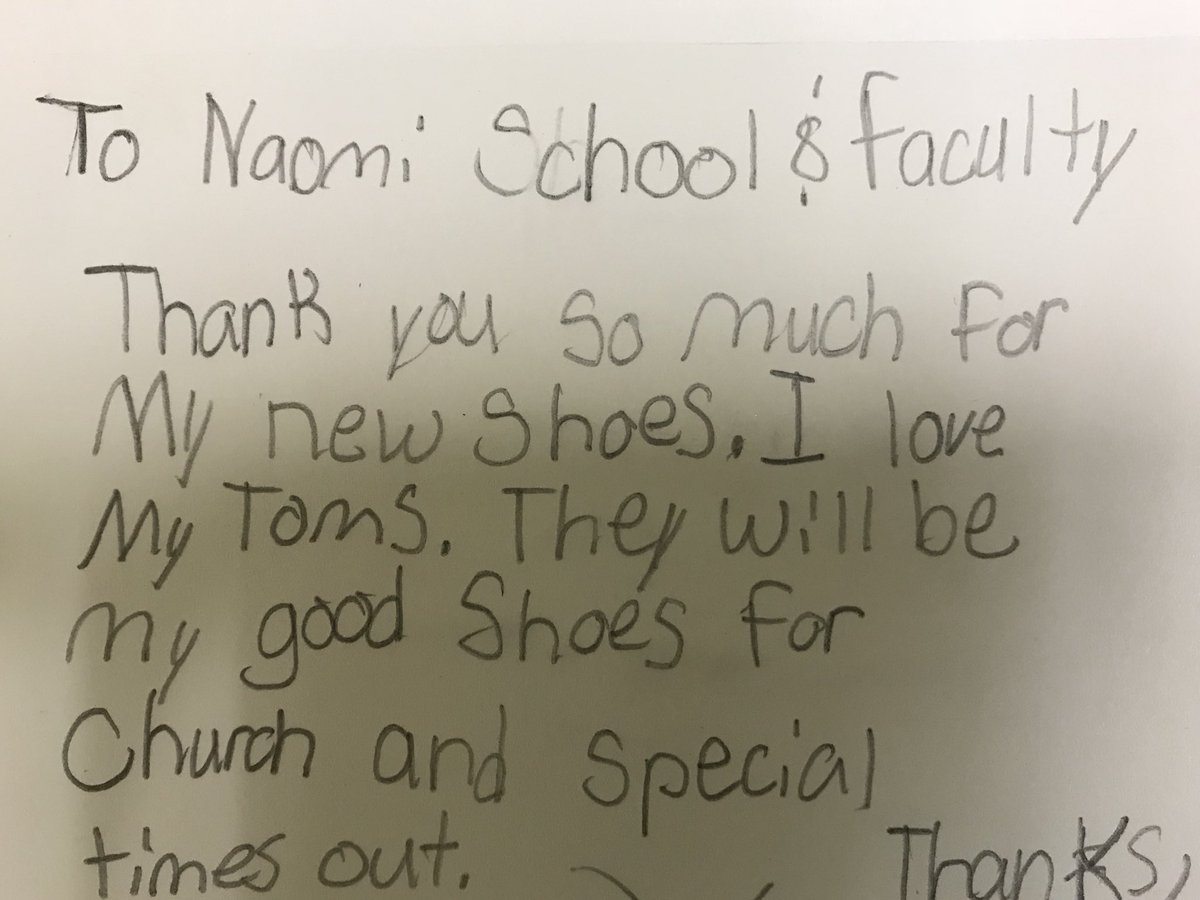 To Naomi School & faculty
Thank you so much for
My new Shoes. I love
My Toms. They will be
my good Shoes for
Church and special
times out.
Thanks,